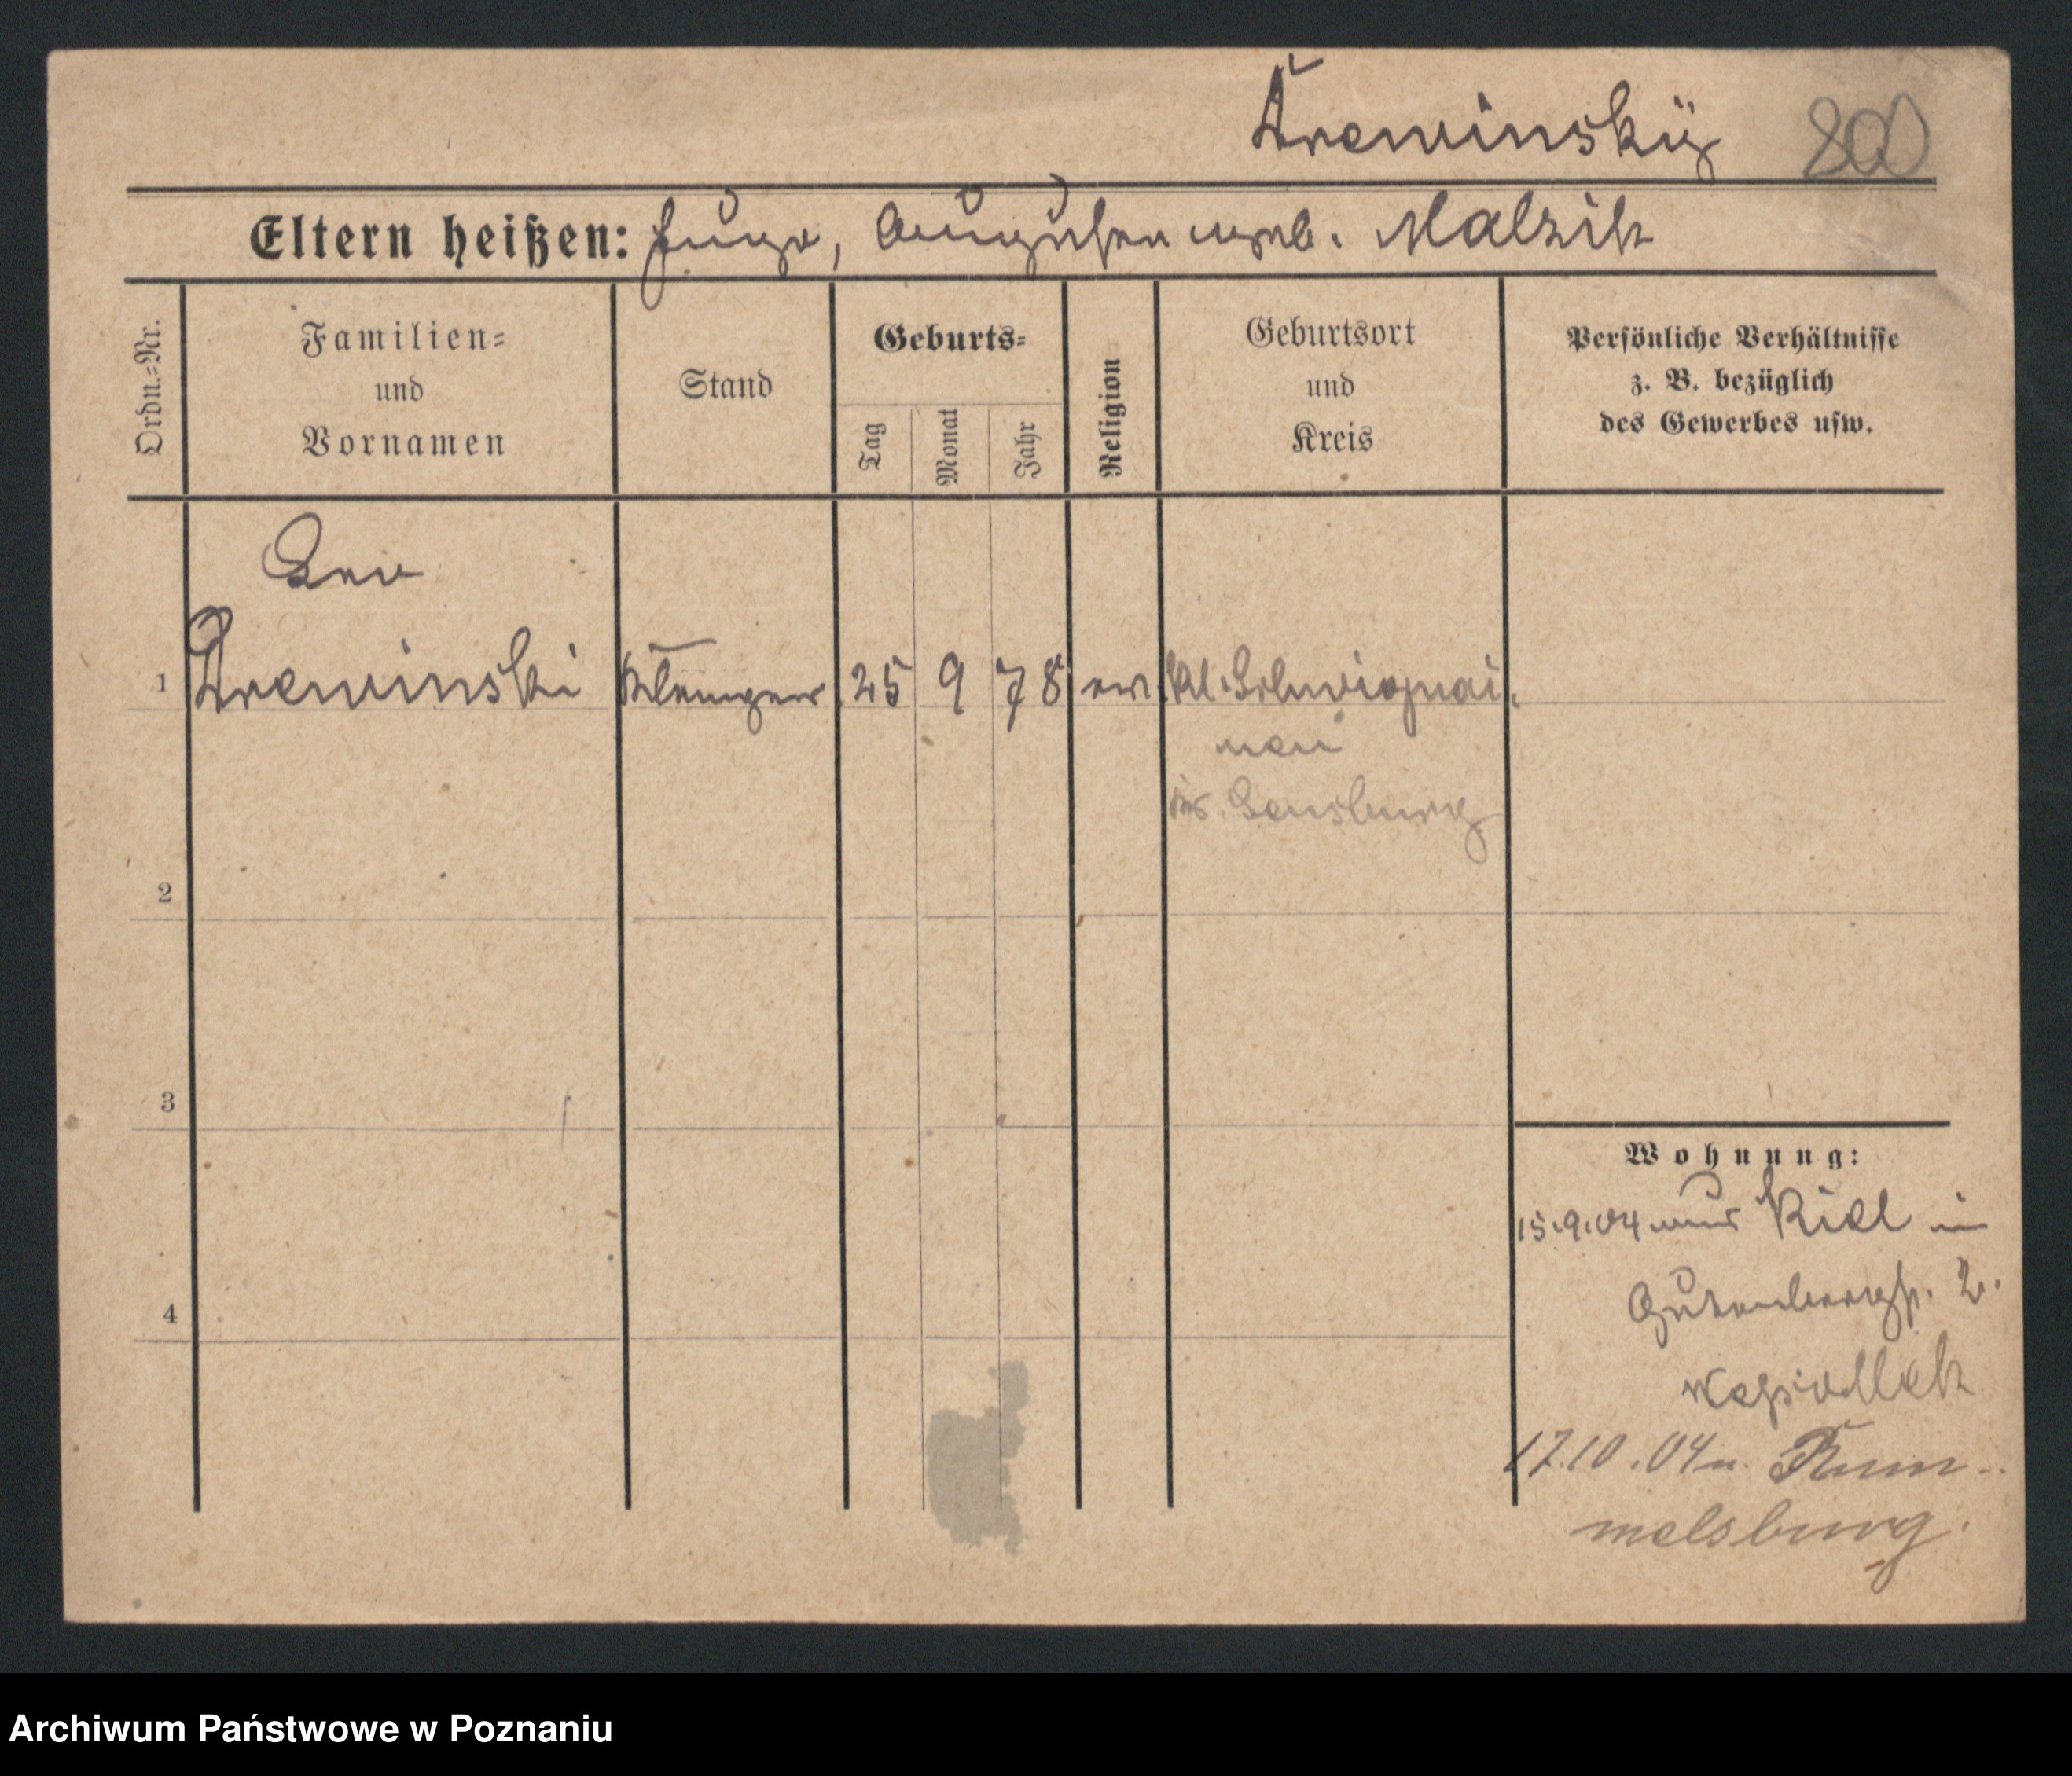 800
Eltern heißen: Hugo, Augusten geb. Malzik
Ordn.=Nr.
Familien=
und
Vornamen
Stand
Geburts=
Tag
Monat
Jahr
Religion
Geburtsort
und
Kreis
Persönliche Verhältnisse
z. B. bezüglich
des Gewerbes usw.
Leo
1 25 9 78 ev.
Kr. Sensburg
2
3
4
Wohnung:
15.9.04 aus Kiel in
Gutenbergstr. 2.
17.10.04 n. Rum-
melsburg.
Archiwum Państwowe w Poznaniu